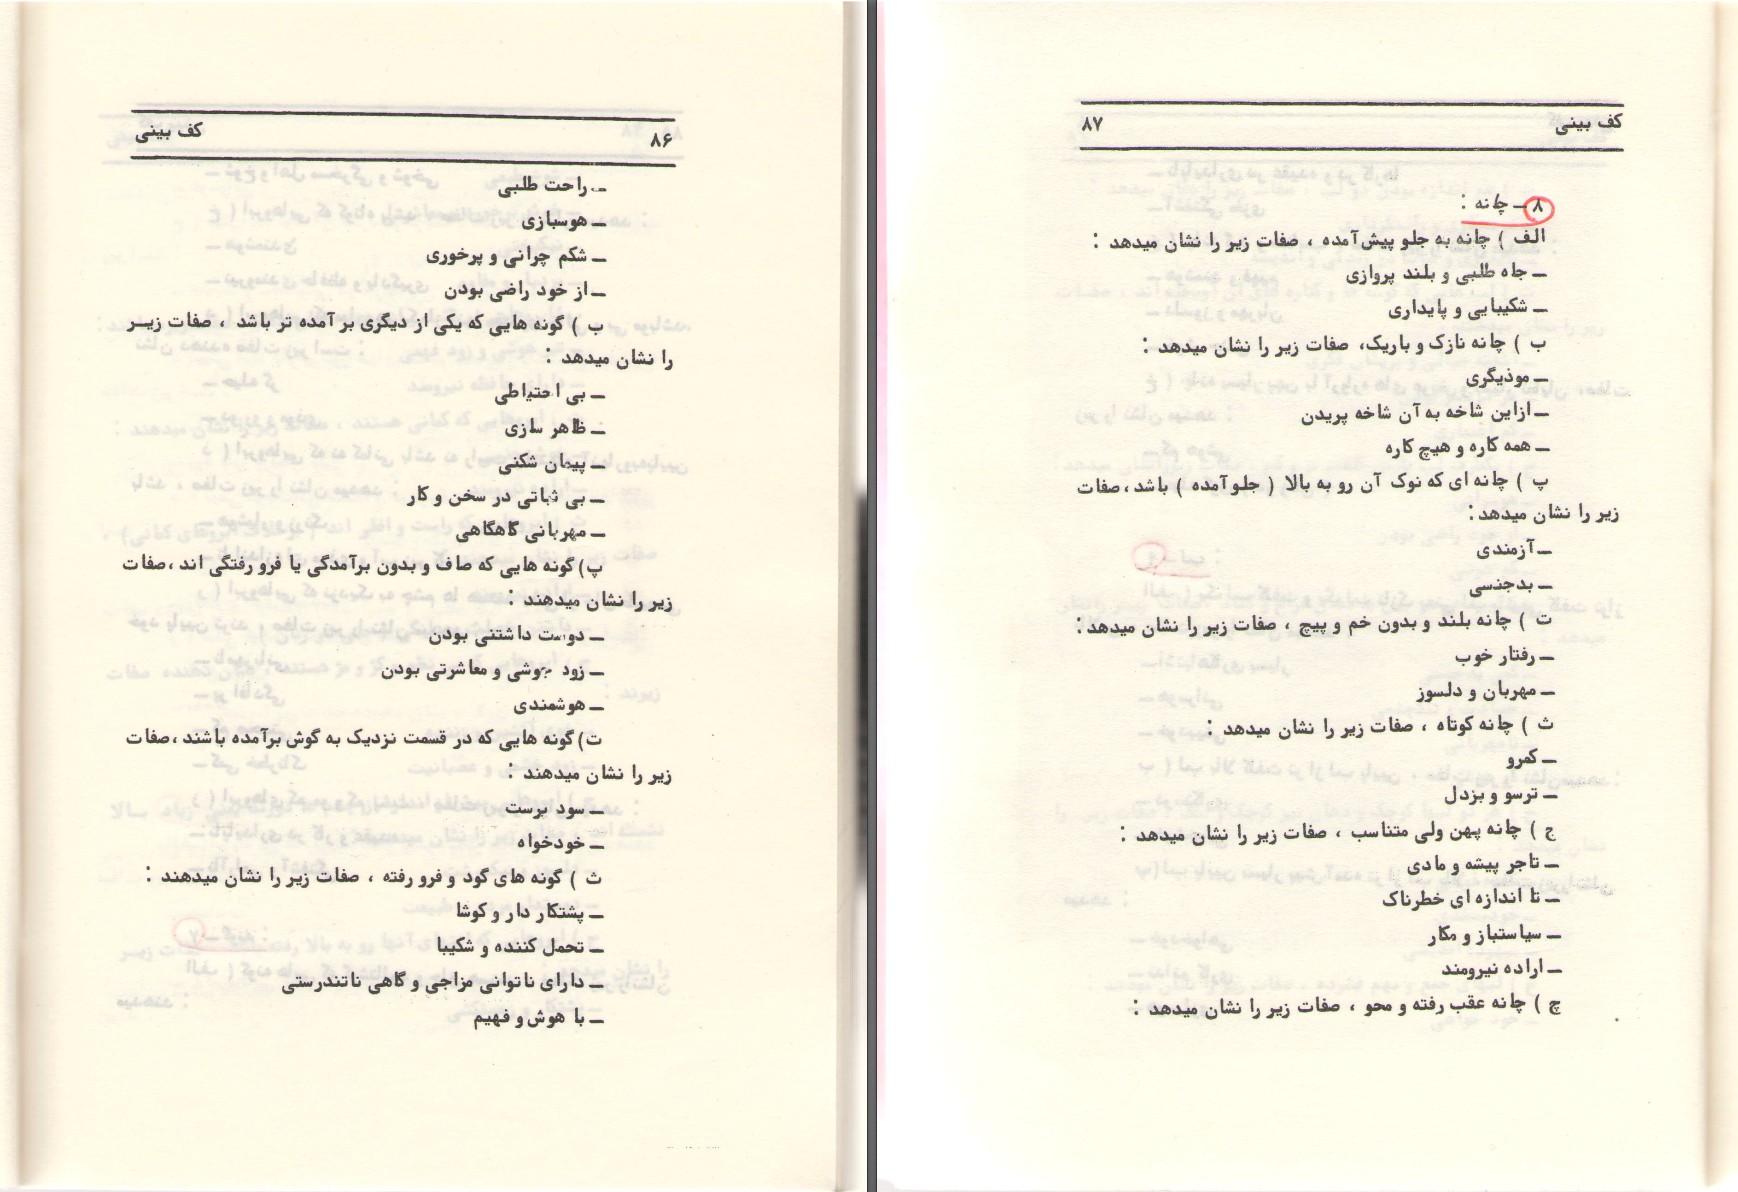 کف بینی ۸۶
ــ راحت طلبی
ــ هوسبازی
ــ شکم چرانی و پرخوری
ــ از خود راضی بودن
ب ) گونه هایی که یکی از دیگری بر آمده تر باشد ، صفات زیـر
را نشان میدهد :
ــ بی احتیاطی
ــ ظاهر سازی
ــ پیمان شکنی
ــ بی ثباتی در سخن و کار
ــ مهربانی گاهگاهی
پ) گونه هایی که صاف و بدون برآمدگی یا فرو رفتگی اند ،صفات
زیر را نشان میدهند :
ــ دوست داشتنی بودن
ــ زود جوشی و معاشرتی بودن
ــ هوشمندی
ت) گونه هایی که در قسمت نزدیک به گوش برآمده باشند ،صفات
زیر را نشان میدهند :
ــ سود پرست
ــ خودخواه
ث ) گونه های گود و فرو رفته ، صفات زیر را نشان میدهند :
ــ پشتکار دار و کوشا
ــ تحمل کننده و شکیبا
ــ دارای ناتوانی مزاجی و گاهی ناتندرستی
ــ با هوش و فهیم
کف بینی ۸۷
۸ ــ چانه :
الف ) چانه به جلو پیش آمده ، صفات زیر را نشان میدهد :
ــ جاه طلبی و بلند پروازی
ــ شکیبایی و پایداری
ب ) چانه نازک و باریک، صفات زیر را نشان میدهد :
ــ موذیگری
ــ ازاین شاخه به آن شاخه پریدن
ــ همه کاره و هیچ کاره
پ ) چانه ای که نوک آن رو به بالا ( جلو آمده ) باشد ،صفات
زیر را نشان میدهد :
ــ آزمندی
ــ بدجنسی
ت ) چانه بلند و بدون خم و پیچ ، صفات زیر را نشان میدهد :
ــ رفتار خوب
ــ مهربان و دلسوز
ث ) چانه کوتاه ، صفات زیر را نشان میدهد :
ــ کمرو
ــ ترسو و بزدل
ج ) چانه پهن ولی متناسب ، صفات زیر را نشان میدهد :
ــ تاجر پیشه و مادی
ــ تا اندازه ای خطرناک
ــ سیاستباز و مکار
ــ اراده نیرومند
چ ) چانه عقب رفته و محو ، صفات زیر را نشان میدهد :